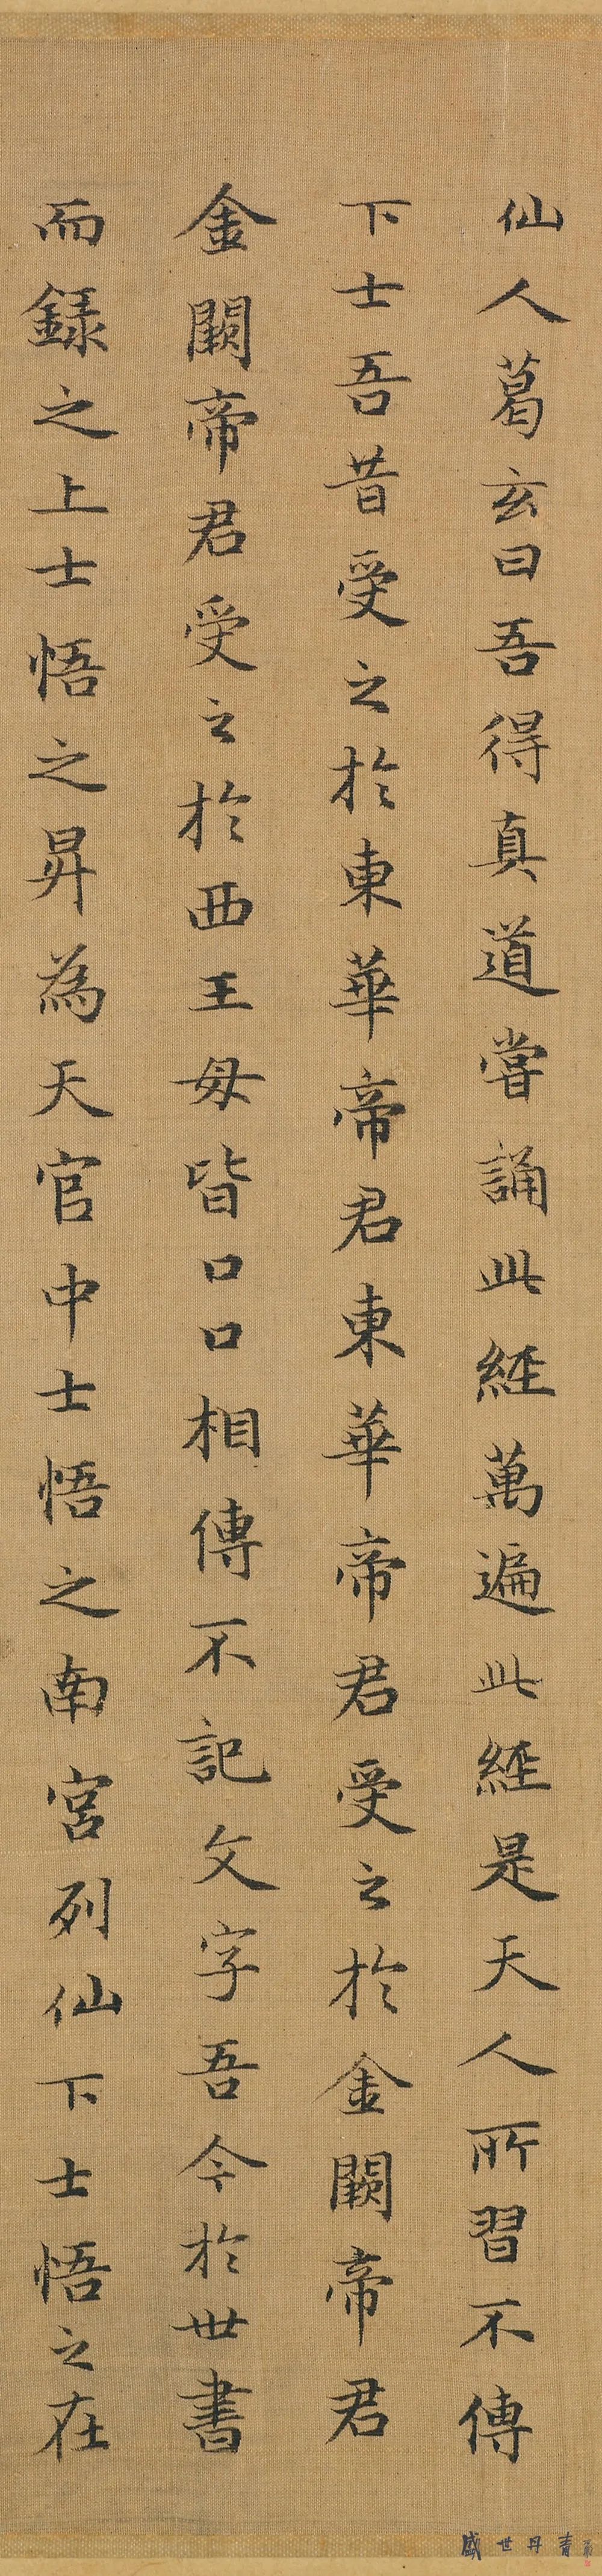 仙人葛玄曰吾得真道嘗誦此經萬遍此經是天人所習不傳
下士吾昔受之於東華帝君東華帝君受之於金闕帝君
金闕帝君受之於西王母皆口口相傳不記文字吾今於世書
而録之上士悟之昇為天官中士悟之南宮列仙下士悟之在
盛世丹青